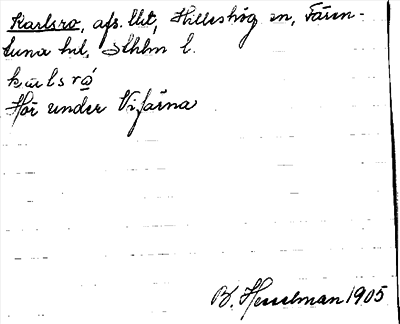 Karlsro, afs. lht, Hilleshög sn, Fären-
tuna hd, Sthlm l.
kārlsrό̱
Hör under Vifärna
B. Hesselman 1905